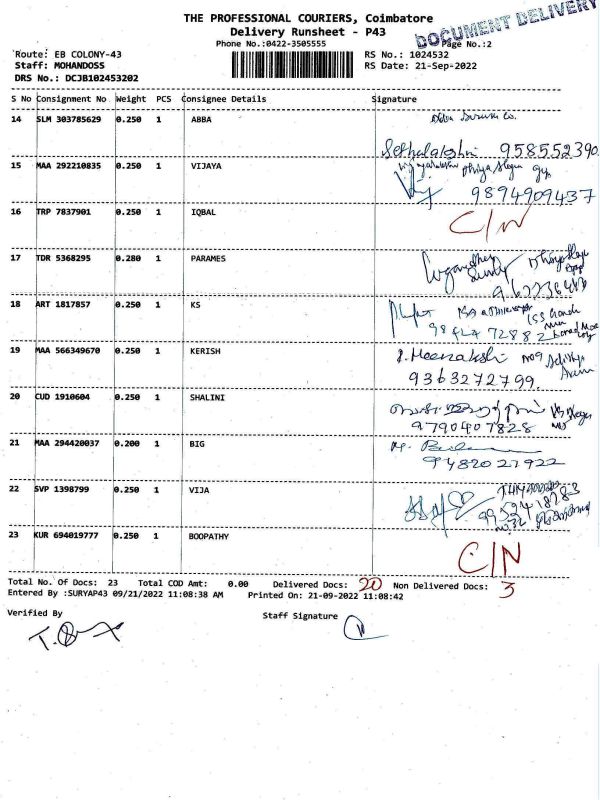 THE PROFESSIONAL COURIERS, Coimbatore
Delivery Runsheet - P43
DOCUMENT DELIVERY
Phone No.:0422-3505555
Page No.:2
Route: EB COLONY-43
RS No.: 1024532
Staff: MOHANDOSS
RS Date: 21-Sep-2022
DRS No.: DCJB102453202
S No Consignment No Weight PCS Consignee Details Signature
14 SLM 303785629 0.250 1 ABBA
958552390
15 MAA 292210835 0.250 1 VIJAYA
9894909437
16 TRP 7837901 0.250 1 IQBAL C/N
17 TDR 5368295 0.280 1 PARAMES
18 ART 1817857 0.250 1 KS
19 MAA 566349670 0.250 1 KERISH
J. Meenakshi
9363272799.
20 CUD 1910604 0.250 1 SHALINI
9790407828
21 MAA 294420037 0.200 1 BIG
9482027922
22 SVP 1398799 0.250 1 VIJA
23 KUR 694019777 0.250 1 BOOPATHY C/N
Total No. Of Docs: 23 Total COD Amt: 0.00 Delivered Docs: 20 Non Delivered Docs: 3
Entered By :SURYAP43 09/21/2022 11:08:38 AM Printed On: 21-09-2022 11:08:42
Verified By
Staff Signature